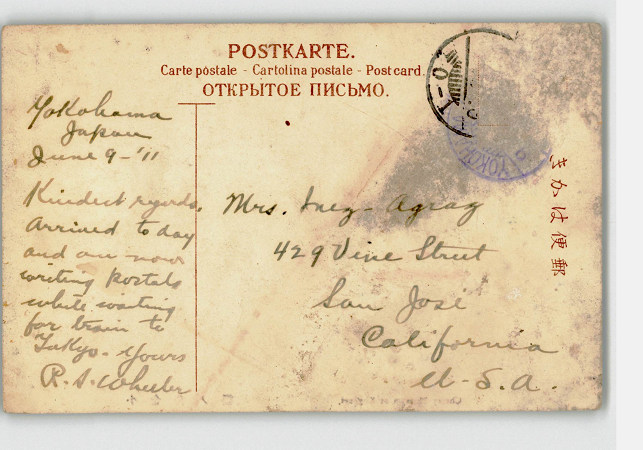 POSTKARTE.
Carte postale - Cartolina postale - Post card.
ОТКРЫТОЕ ПИСЬМО.
Yokohama
Japan
June 9 - '11
Kindest regards.
Arrived to day
and are now
writing postals
while waiting
for train to
Tokyo. Yours
R. S. Wheeler
Mrs. Inez
429 Vine Street
San José
California
U. S. A.
きかは便郵
YOKO